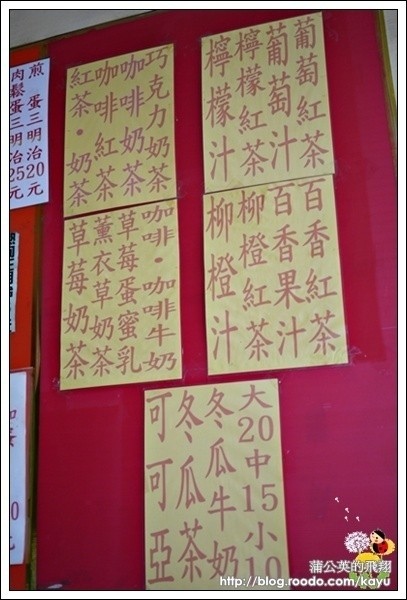 煎蛋三明治20元
肉鬆蛋三明治25元
巧克力奶茶
咖啡奶茶
咖啡紅茶
紅茶·奶茶
葡萄紅茶
葡萄汁
檸檬紅茶
檸檬汁
咖啡·咖啡牛奶
草莓蛋蜜乳
薰衣草奶茶
草莓奶茶
百香紅茶
百香果汁
柳橙紅茶
柳橙汁
大20中15小10
冬瓜牛奶
冬瓜茶
可可亞
蒲公英的飛翔
http://blog.roodo.com/kayu